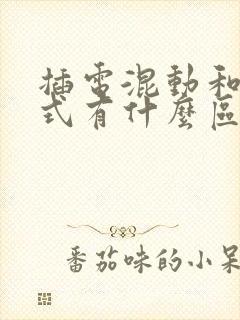 插電混動和
式有什麼區
番茄味的小呆